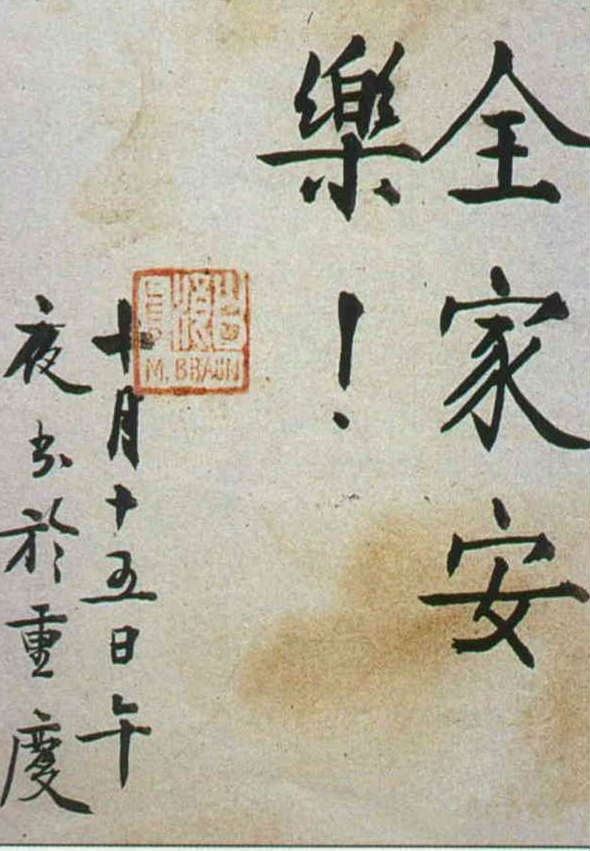 全家安
樂！
M. BRAUN
十月十五日午
夜书於重慶